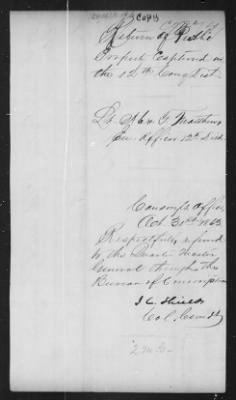 COPY
Return of Public
Propert Captured in
the 12th Cong Dist.
Lt. A. G. Matthews
En. Officer 12th Dist.
Conscript Office
Oct 31st 1863
Respectfully refered
to the Quarter Master
General through the
Bureau of Conscription
J C Shields
Col. Comdt